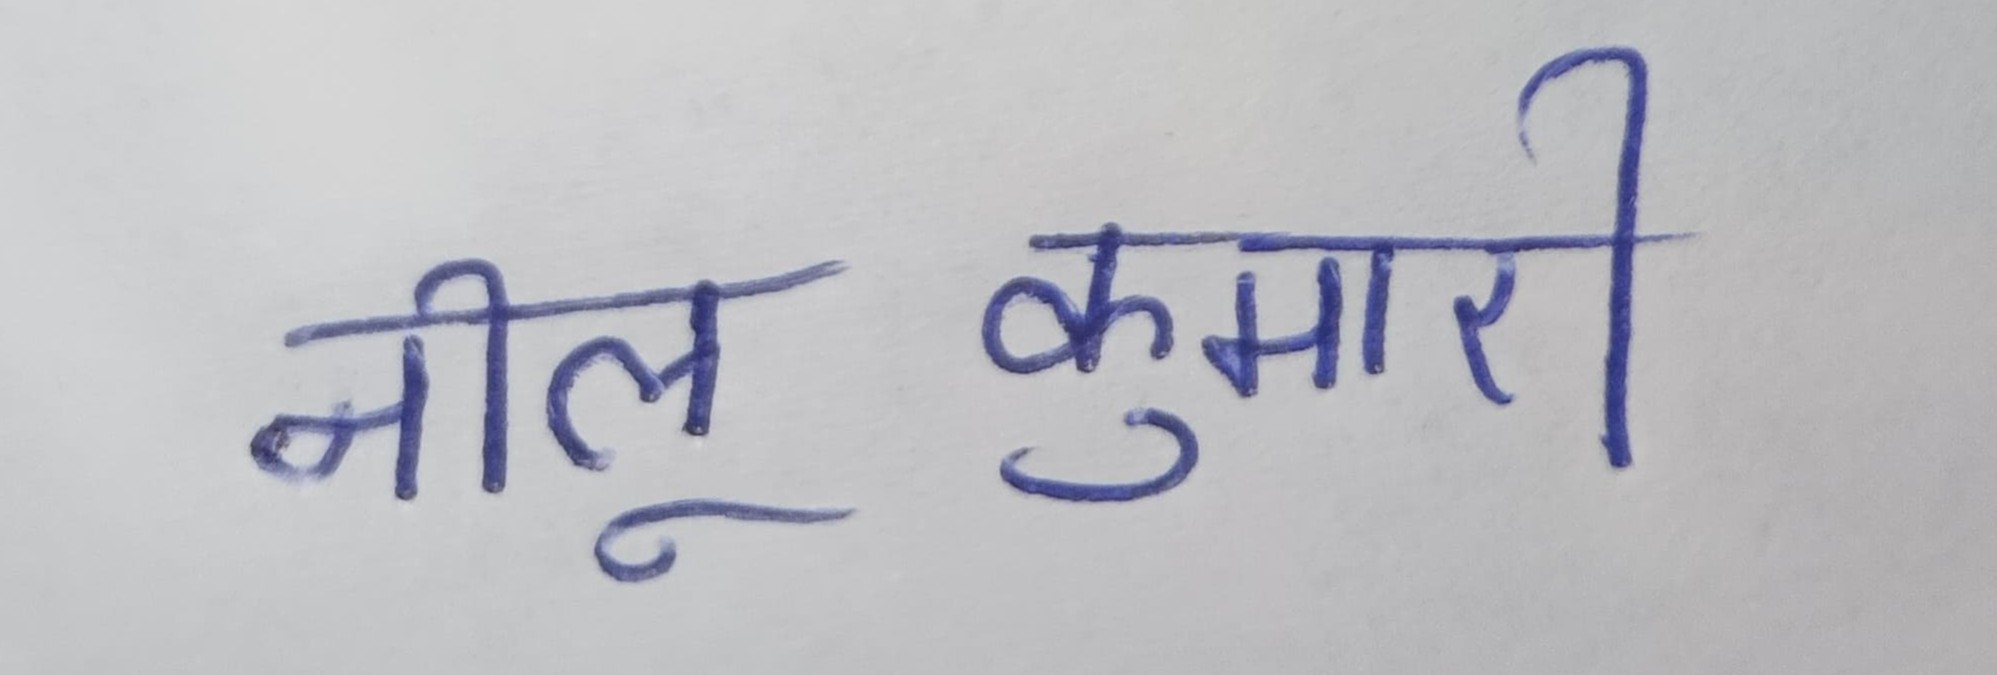 नीलू कुमारी